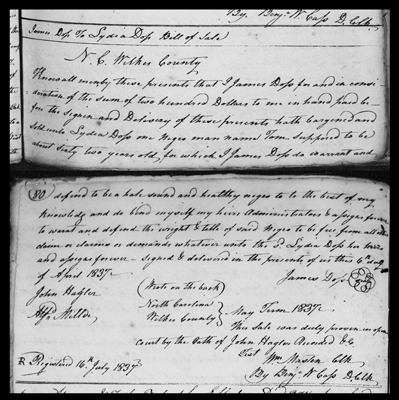 By, Benj. W. Cass D. Clk
James Doss To Lydia Doss Bill of Sale
N. C. Wilkes County
Know all men by these presents that I James Doss for and in consi-
deration of the sum of two hundred Dollars to me in hand paid be-
fore the signin and Delivary of these presents hath bargened and
sold unto Lydia Doss one Negro man name Tom supposed to be
about sixty two years old, for which I James Doss do warrant and
80 defend to be a hale sound and healthy negro to the best of my
knowledg and do bind myself my heirs Administrators & assigns forever
to warnt and defend the wright & title of said Negro to be free from all other
claim or clarms or demands whatever unto the Sd Lydia Doss her heirs
and assigns forever - signed & delivered in the presents of us this 6th day
of April 1837
James Doss
John Haylor
Wrote on the back
North Carolina
Wilkes County
May Term 1837
This Sale was duly proven in open
court by the Oath of John Haylor Record &c.
Test Wm Masten Clk
By Benj. W Cass D. Clk
R Registered 16th July 1837